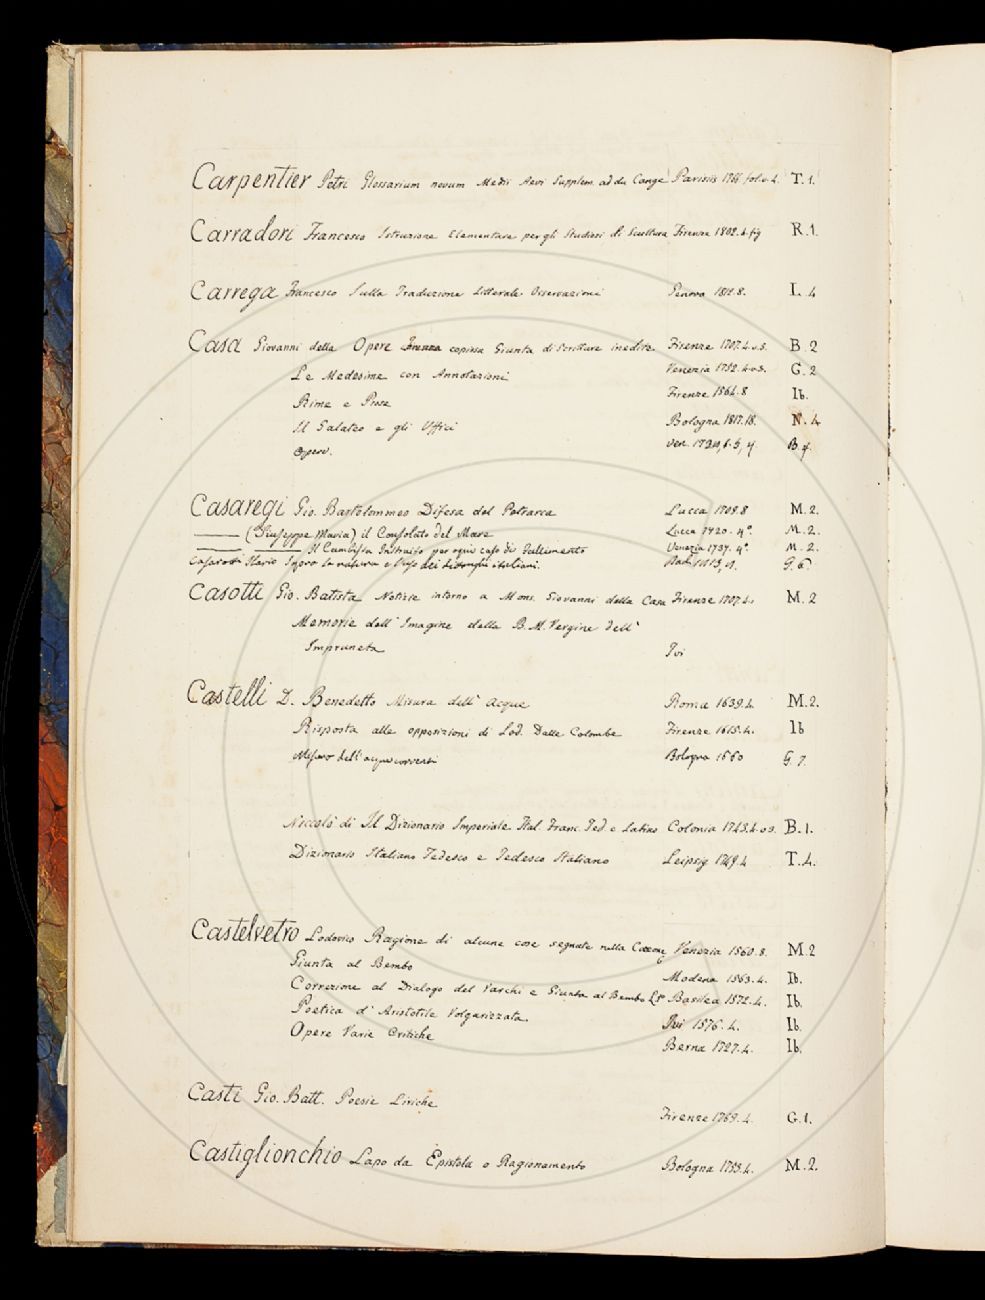 Carpentier Petri Glossarium novum Medii Aevi Supplem. ad du Cange Parisiis 1766 fol. v. 4. T. 1.
Carradori Francesco Istruzione Elementare per gli Studiosi di Scultura Firenze 1802. 4. fig R. 1.
Carrega Francesco Sulla Traduzione Litterale Osservazioni Genova 1812. 8. L. 4
Casa Giovanni della Opere copiosa Giunta di Scritture inedite Firenze 1707. 4. v. 3. B. 2
Le Medesime con Annotazioni Venezia 1752. 4. v. 3. G. 2
Rime e Prose Firenze 1564. 8 Ib.
Il Galateo e gli Uffici Bologna 1817. 18. N. 4
Opere. Ven. B. 4.
Casaregi Gio. Bartolommeo Difesa del Petrarca Lucca 1709. 8 M. 2.
——— (Giuseppe Maria) il Consolato del Mare Lucca 1720. 4°. M. 2.
——— Il Cambista Instruito per ogni caso di Fallimento Venezia 1737. 4°. M. 2.
Casarotti Ilario Sopra la natura e l'uso dei dittonghi italiani. Pad. 1813, G. 6
Casotti Gio. Batista Notizie intorno a Mons. Giovanni della Casa Firenze 1707. 4. M. 2
Memorie dell' Imagine della B. M. Vergine dell'
Impruneta Ivi
Castelli D. Benedetto Misura dell' Acque Roma 1639. 4. M. 2.
Risposta alle opposizioni di Lod. Dalle Colombe Firenze 1615. 4. Ib
Misura dell' acque correnti Bologna 1660 G. 7.
Niccolò di Il Dizionario Imperiale Ital. Franc. Ted. e Latino Colonia 1743. 4. v 3. B. 1.
Dizionario Italiano Tedesco e Tedesco Italiano Leipsig 1749. 4 T. 4.
Castelvetro Lodovico Ragione di alcune cose segnate nella Canzone Venezia 1560. 8. M. 2
Giunta al Bembo Modena 1563. 4. Ib.
Correzione al Dialogo del Varchi e Giunta al Bembo Basilea 1572. 4. Ib.
Poetica d' Aristotile Volgarizzata Ivi 1576. 4. Ib.
Opere Varie Critiche Berna 1727. 4. Ib.
Casti Gio. Batt. Poesie Liriche Firenze 1769. 4. G. 1.
Castiglionchio Lapo da Epistola o Ragionamento Bologna 1753. 4. M. 2.